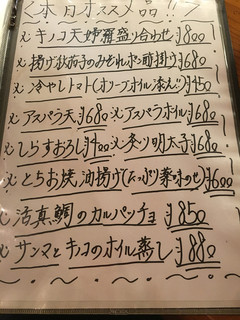 <本日オススメ品!!>
〆 キノコ天婦羅盛り合わせ ¥800
〆 揚げ秋茄子のみぞれポン酢掛け ¥680
〆 冷やしトマト(オリーブオイル添え) ¥450
〆 アスパラ天 ¥680 〆 アスパラホイル ¥680
〆 しらすおろし ¥400 〆 炙り明太子 ¥680
〆 とちお焼油揚げ(たっぷり薬味のせ) ¥600
〆 活真鯛のカルパッチョ ¥850
〆 サンマとキノコのホイル蒸し ¥880